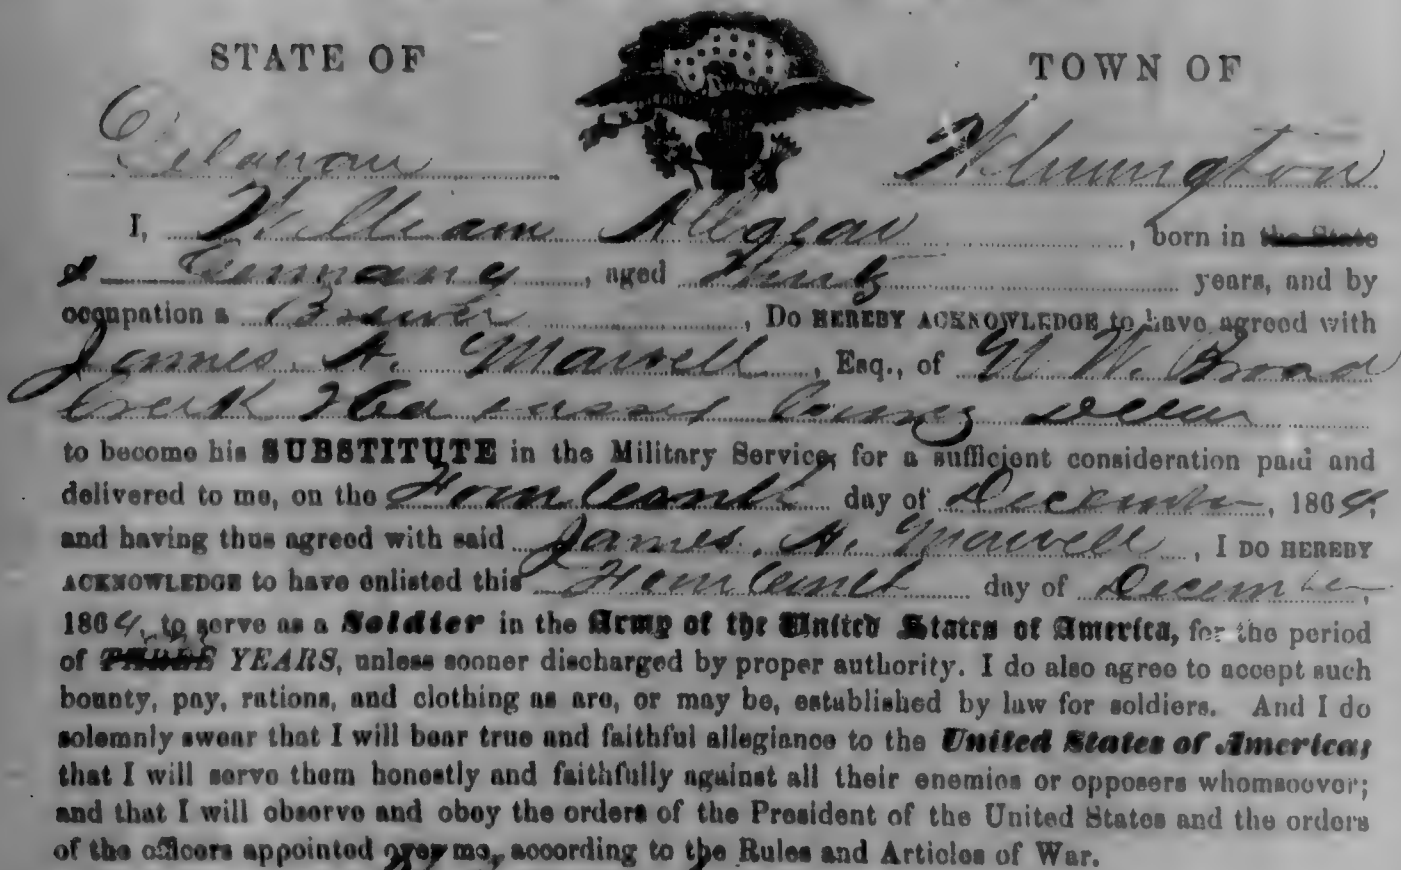 STATE OF TOWN OF
Delawar Wilmington
I, William Allgear, born in the State
of Germany, aged years, and by
occupation a Brewer, DO HEREBY ACKNOWLEDGE to have agreed with
James. A. Maxwell, Esq., of N W. Broad
Creek Sussex
to become his SUBSTITUTE in the Military Service, for a sufficient consideration paid and
delivered to me, on the day of December, 1864,
and having thus agreed with said James. A. Maxwell, I DO HEREBY
ACKNOWLEDGE to have enlisted this day of December,
1864, to serve as a Soldier in the Army of the United States of America, for the period
of THREE YEARS, unless sooner discharged by proper authority. I do also agree to accept such
bounty, pay, rations, and clothing as are, or may be, established by law for soldiers. And I do
solemnly swear that I will bear true and faithful allegiance to the United States of America;
that I will serve them honestly and faithfully against all their enemies or opposers whomsoever;
and that I will observe and obey the orders of the President of the United States and the orders
of the officers appointed over me, according to the Rules and Articles of War.